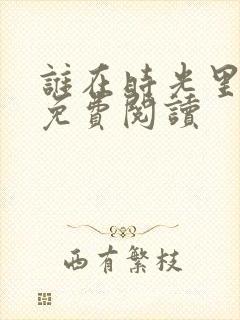 誰在時光里
免費閱讀
西有繁枝